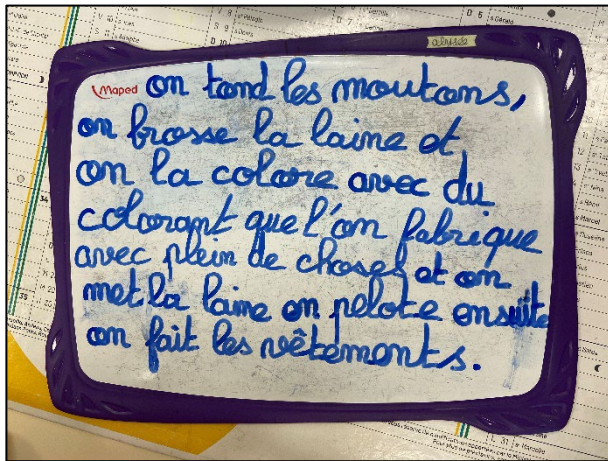 Maped
on tond les moutons,
on brosse la laine et
on la colore avec du
colorant que l'on fabrique
avec plein de choses et on
met la laine en pelote ensuite
on fait les vêtements.